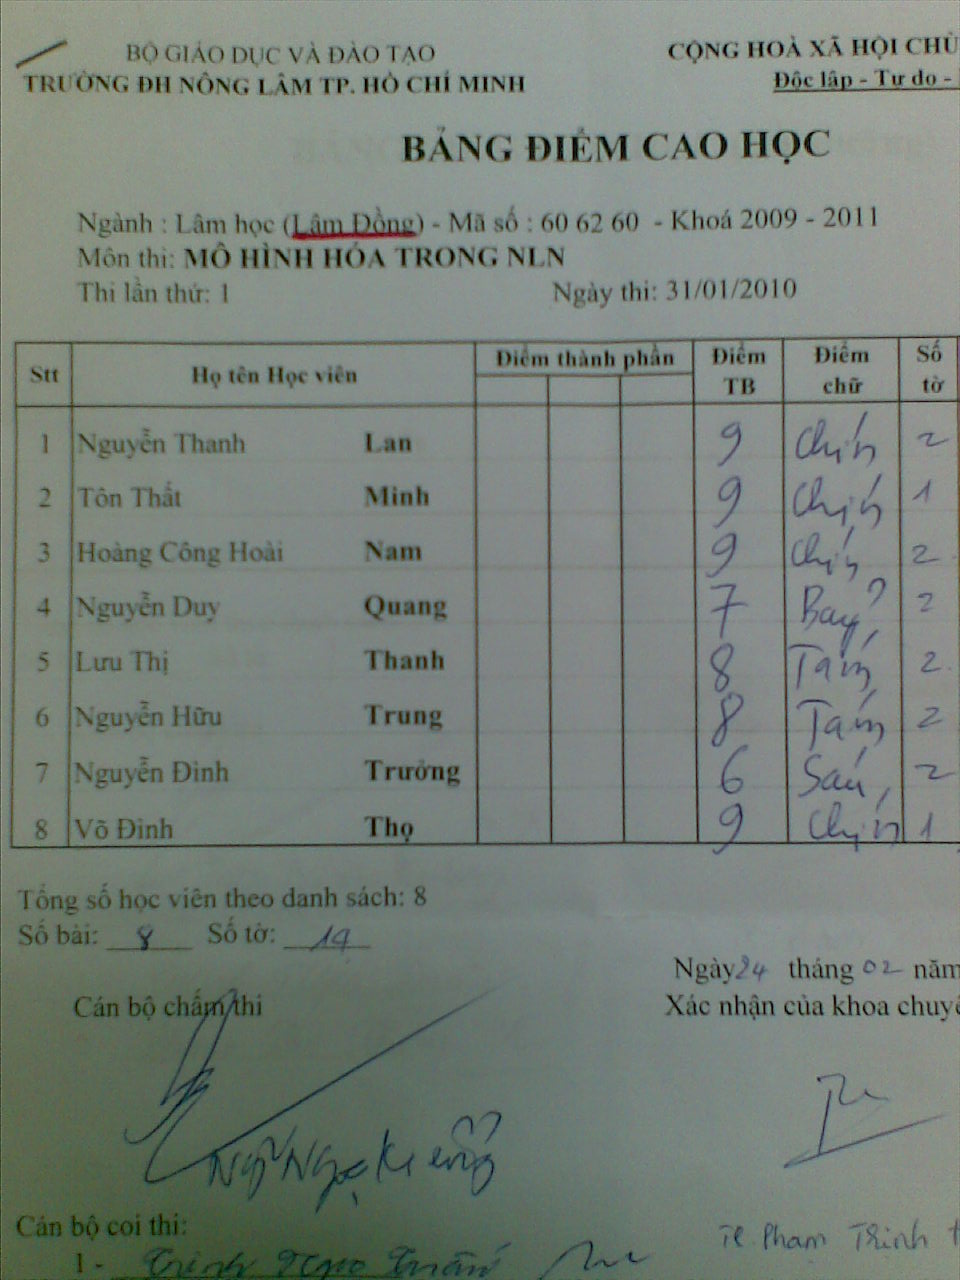 BỘ GIÁO DỤC VÀ ĐÀO TẠO
TRƯỜNG ĐH NÔNG LÂM TP. HỒ CHÍ MINH
CỘNG HOÀ XÃ HỘI CHỦ
Độc lập - Tự do -
BẢNG ĐIỂM CAO HỌC
Ngành : Lâm học (Lâm Đồng) - Mã số : 60 62 60 - Khoá 2009 - 2011
Môn thi: MÔ HÌNH HÓA TRONG NLN
Thi lần thứ: 1 Ngày thi: 31/01/2010
Stt Họ tên Học viên Điểm thành phần Điểm TB Điểm chữ Số tờ
1 Nguyễn Thanh Lan 9 Chín 2
2 Tôn Thất Minh 9 Chín 1
3 Hoàng Công Hoài Nam 9 Chín 2
4 Nguyễn Duy Quang 7 Bảy 2
5 Lưu Thị Thanh 8 Tám 2
6 Nguyễn Hữu Trung 8 Tám 2
7 Nguyễn Đình Trưởng 6 Sáu 2
8 Võ Đình Thọ 9 Chín 1
Tổng số học viên theo danh sách: 8
Số bài: 8 Số tờ: 14
Ngày 24 tháng 02 năm
Cán bộ chấm thi
Xác nhận của khoa chuyê
Cán bộ coi thi:
Phạm Trinh
1 -